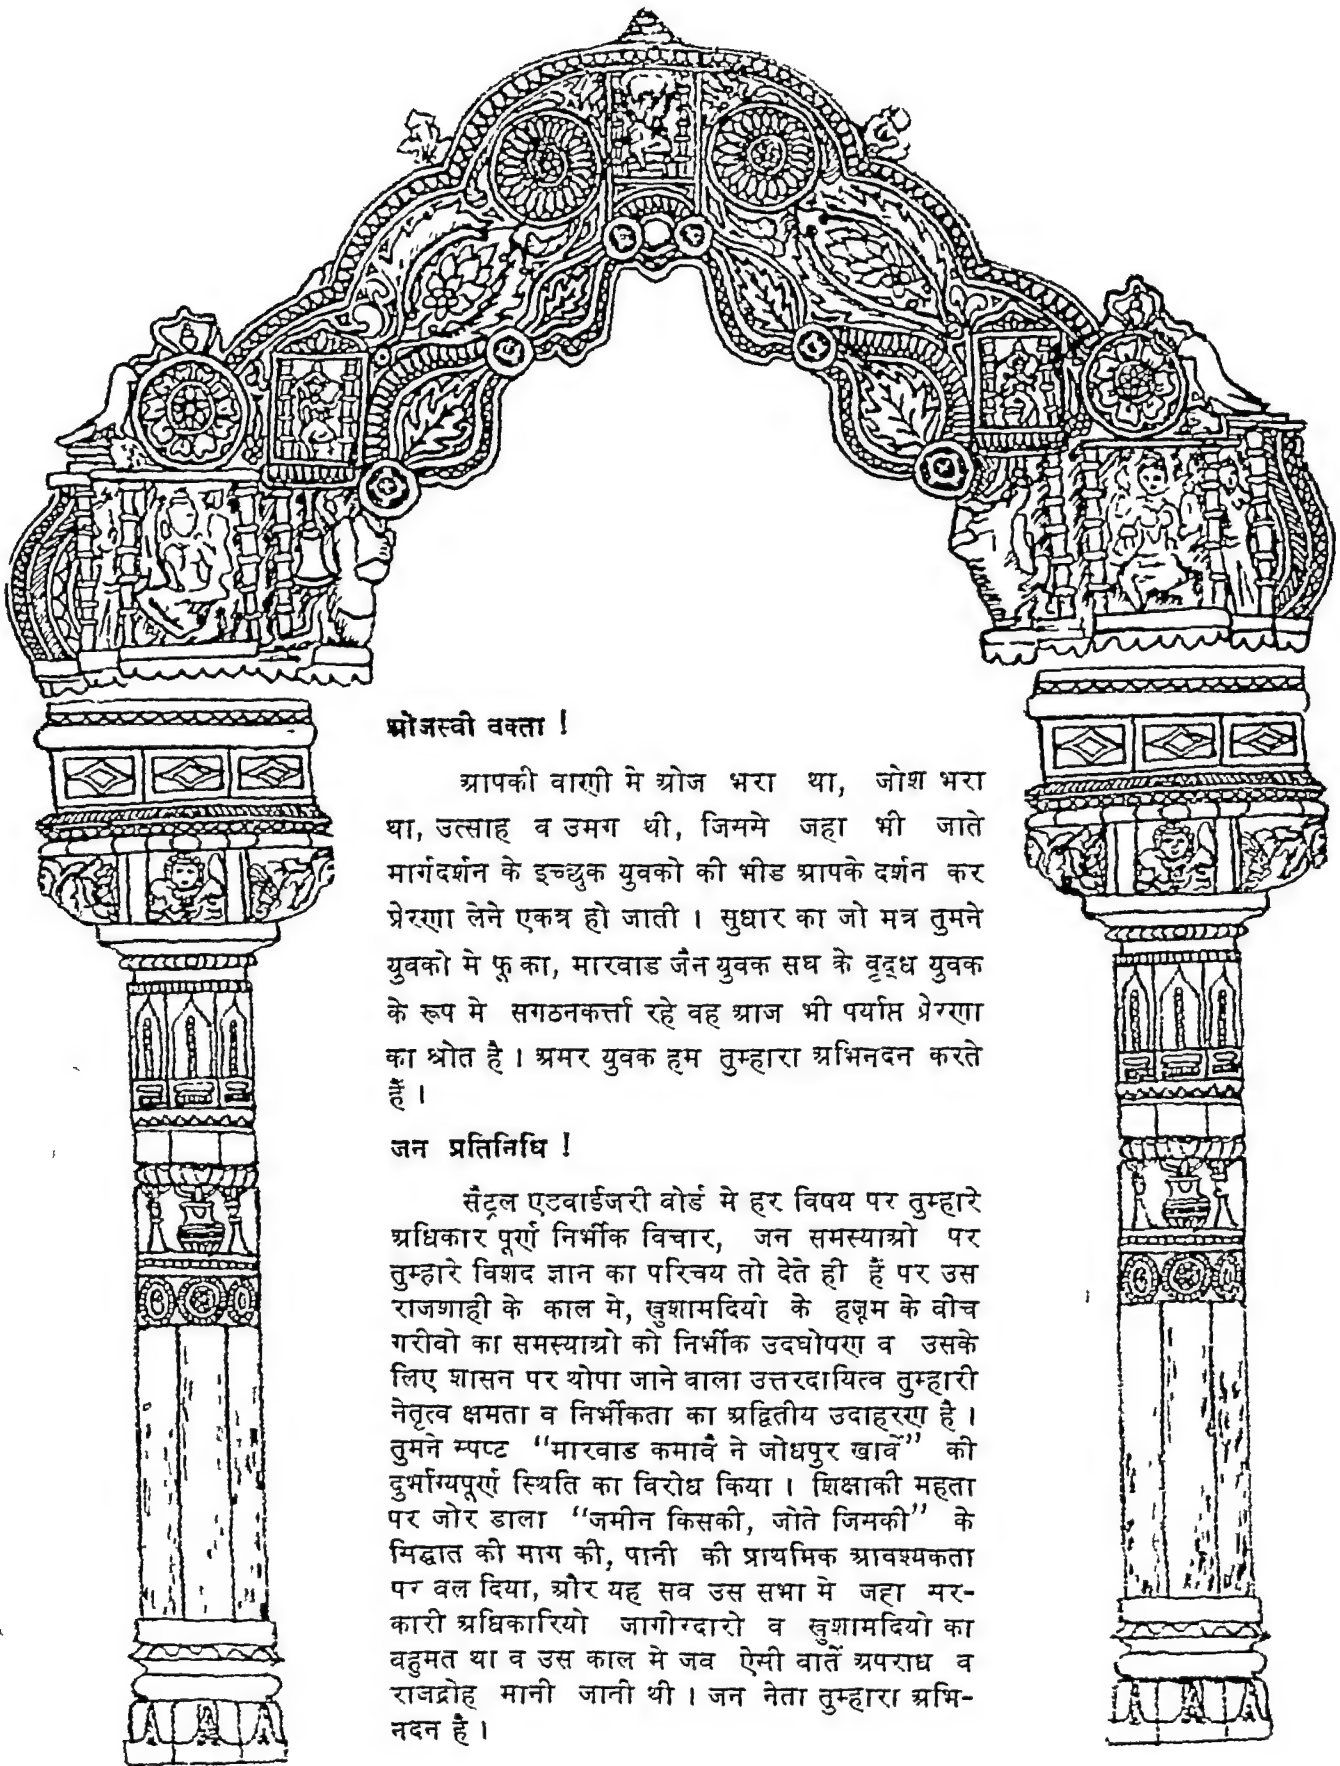 ओजस्वी वक्ता !
आपकी वाणी मे ओज भरा था, जोश भरा
था, उत्साह व उमग थी, जिसमे जहा भी जाते
मार्गदर्शन के इच्छुक युवको की भीड आपके दर्शन कर
प्रेरणा लेने एकत्र हो जाती । सुधार का जो मत्र तुमने
युवको मे फू का, मारवाड जैन युवक सघ के वृद्ध युवक
के रूप मे सगठनकर्त्ता रहे वह आज भी पर्याप्त प्रेरणा
का श्रोत है । अमर युवक हम तुम्हारा अभिनदन करते
हैं ।
जन प्रतिनिधि !
सैंट्रल एटवाईजरी बोर्ड मे हर विषय पर तुम्हारे
अधिकार पूर्ण निर्भीक विचार, जन समस्याओ पर
तुम्हारे विशद ज्ञान का परिचय तो देते ही हैं पर उस
राजशाही के काल मे, खुशामदियो के हजूम के बीच
गरीबो का समस्याओ को निर्भीक उदघोषण व उसके
लिए शासन पर थोपा जाने वाला उत्तरदायित्व तुम्हारी
नेतृत्व क्षमता व निर्भीकता का अद्वितीय उदाहरण है ।
तुमने स्पष्ट “मारवाड कमावै ने जोधपुर खावै” की
दुर्भाग्यपूर्ण स्थिति का विरोध किया । शिक्षाकी महता
पर जोर डाला “जमीन किसकी, जोते जिसकी” के
सिद्धात की माग की, पानी की प्राथमिक आवश्यकता
पर बल दिया, और यह सब उस सभा मे जहा सर-
कारी अधिकारियो जागीरदारो व खुशामदियो का
बहुमत था व उस काल मे जब ऐसी बातें अपराध व
राजद्रोह मानी जानी थी । जन नेता तुम्हारा अभि-
नदन है ।